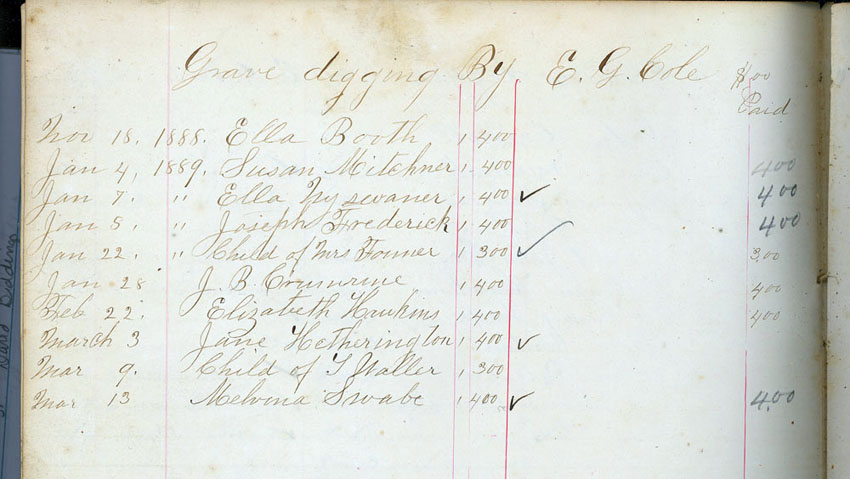 Grave digging By E. G. Cole $ 00
Paid
Nov 18, 1888. Ella Booth 1 400
Jan 4, 1889. Susan Mitchner 1 400 400
Jan 7. " Ella 1 400 ✓ 400
Jan 5, " Joseph Frederick 1 400 400
Jan 22. " Child of Mrs Fonner 1 300 ✓ 3.00
Jan 28 J. B. Crumrine 1 400 400
Feb 22. Elizabeth Hawkins 1 400 400
March 3 Jane Hetherington 1 400 ✓
Mar 9. Child of T Waller 1 300
Mar 13 Melvina Swabe 1 400 ✓ 4.00